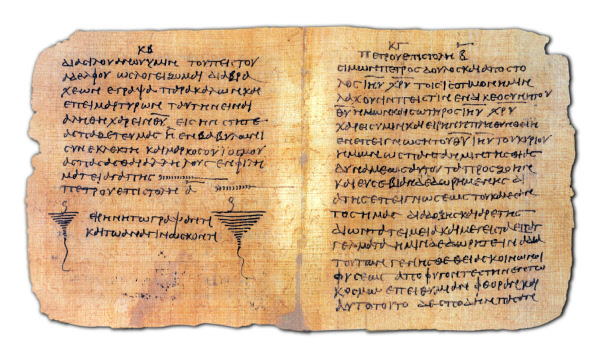 ΚΒ
ΔΙΑ ΣΙΛΟΥΑΝΟΥ ΥΜΙΝ ΤΟΥ ΠΙΣΤΟΥ
ΑΔΕΛΦΟΥ ΩΣ ΛΟΓΙΖΟΜΑΙ ΔΙΑ ΒΡΑ
ΧΕΩΝ ΕΓΡΑΨΑ ΠΑΡΑΚΑΛΩΝ ΚΑΙ
ΕΠΕΙΜΑΡΤΥΡΩΝ ΤΑΥΤΗΝ ΕΙΝΑΙ
ΑΛΗΘΗ ΧΑΡΕΙΝ ΘΥ ΕΙΣ ΗΝ ΣΤΗΤΕ
ΑΣΠΑΖΕΤΕ ΥΜΑΣ Η ΕΝ ΒΑΒΥΛΩΝΙ
ΣΥΝΕΚΛΕΚΤΗ ΚΑΙ ΜΑΡΚΟΣ Ο ΥΙΟΣ ΜΟΥ
ΑΣΠΑΣΑΣΘΕ ΑΛΛΗΛΟΥΣ ΕΝ ΦΙΛΗ
ΜΑΤΕΙ ΑΓΑΠΗΣ
ΠΕΤΡΟΥ ΕΠΙΣΤΟΛΗ Α
ΕΙΡΗΝΗ ΤΩ ΓΡΑΨΑΝΤΙ
ΚΑΙ ΤΩ ΑΝΑΓΙΝΩΣΚΟΝΤΙ
ΚΓ
ΠΕΤΡΟΥ ΕΠΙΣΤΟΛΗ Β
ΣΙΜΩΝ ΠΕΤΡΟΣ ΔΟΥΛΟΣ ΚΑΙ ΑΠΟΣΤΟ
ΛΟΣ ΙΗΥ ΧΡΥ ΤΟΙΣ ΙΣΟΤΙΜΟΝ ΗΜΙΝ
ΛΑΧΟΥΣΙΝ ΠΙΣΤΙΝ ΕΝ ΔΙΚΕΟΣΥΝΗ ΤΟΥ
ΘΥ ΗΜΩΝ ΚΑΙ ΣΩΤΗΡΟΣ ΙΗΥ ΧΡΥ
ΧΑΡΙΣ ΥΜΙΝ ΚΑΙ ΕΙΡΗΝΗ ΠΛΗΘΥΝΘΕΙΗ
ΕΝ ΕΠΙΓΝΩΣΙ ΤΟΥ ΘΥ ΙΗΥ ΤΟΥ ΚΥΡΙΟΥ
ΗΜΩΝ ΩΣ ΠΑΝΤΑ ΗΜΙΝ ΤΗΣ ΘΕΙΑΣ
ΔΥΝΑΜΕΩΣ ΑΥΤΟΥ ΤΑ ΠΡΟΣ ΖΩΗΝ
ΚΑΙ ΕΥΣΕΒΙΑΝ ΔΕΔΩΡΗΜΕΝΗΣ ΔΙ
Α ΤΗΣ ΕΠΕΙΓΝΩΣΕΩΣ ΤΟΥ ΚΑΛΕΣΑΝ
ΤΟΣ ΗΜΑΣ ΔΙΑ ΔΟΞΗΣ ΚΑΙ ΑΡΕΤΗΣ
ΔΙ ΩΝ ΤΑ ΤΕΙΜΕΙΑ ΚΑΙ ΜΕΓΕΙΣΤΑ ΕΠΑΓ
ΓΕΛΜΑΤΑ ΗΜΙΝ ΔΕΔΩΡΗΤΕ ΙΝΑ ΔΙΑ
ΤΟΥΤΩΝ ΓΕΝΗΣΘΕ ΘΕΙΑΣ ΚΟΙΝΩΝΟΙ
ΦΥΣΕΩΣ ΑΠΟΦΥΓΟΝΤΕΣ ΤΗΝ ΕΝ ΤΩ
ΚΟΣΜΩ ΕΠΕΙΘΥΜΙΑΝ ΦΘΟΡΑΣ ΚΑΙ
ΑΥΤΟ ΤΟΥΤΟ ΔΕ ΣΠΟΥΔΗΝ ΠΑΣΑΝ